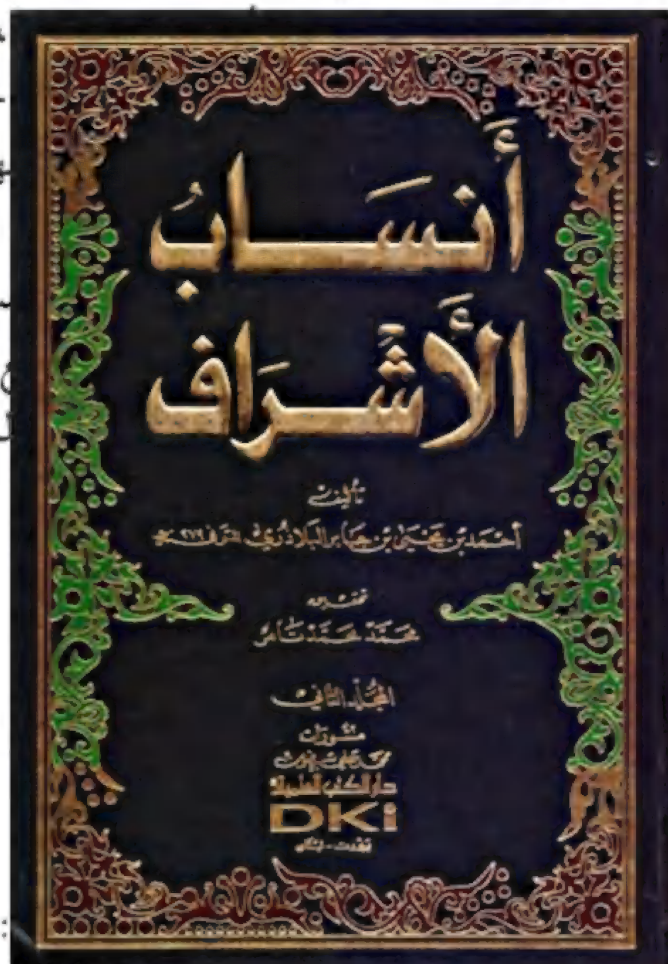 أَنسَابُ
الأَشْرَاف
تأليف
أحمد بن يحيى بن جابر البلاذري المتوفى ٢٧٩ هـ
تحقيق
محمد محمد تامر
المجلد الثاني
منشورات
محمد علي بيضون
دار الكتب العلمية
DKi
بيروت - لبنان